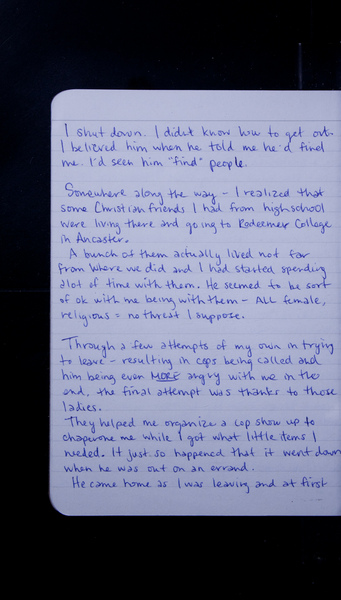 I shut down. I didn't know how to get out.
I believed him when he told me he'd find
me. I'd seen him "find" people.
Somewhere along the way - I realized that
some Christian friends I had from highschool
were living there and going to Redeemer College
in Ancaster.
A bunch of them actually lived not far
from where we did and I had started spending
alot of time with them. He seemed to be sort
of ok with me being with them - ALL female,
religious = no threat I suppose.
Through a few attempts of my own in trying
to leave - resulting in cops being called and
him being even MORE angry with me in the
end, the final attempt was thanks to those
ladies.
They helped me organize a cop show up to
chaperone me while I got what little items I
needed. It just so happened that it went down
when he was out on an errand.
He came home as I was leaving and at first